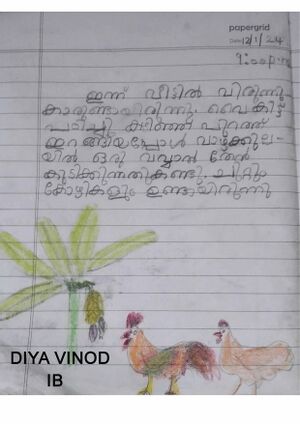 papergrid
Date: 12/1/24
9:00pm
ഇന്ന് വീട്ടിൽ വിരുന്നു-
കാരുണ്ടായിരുന്നു. വൈകിട്ട്
പഠിച്ചു കഴിഞ്ഞ് പുറത്ത്
ഇറങ്ങിയപ്പോൾ വാഴക്കുല-
യിൽ ഒരു വവ്വാൽ തേൻ
കുടിക്കുന്നതുകണ്ടു. ചുറ്റും
കോഴികളും ഉണ്ടായിരുന്നു
DIYA VINOD
IB